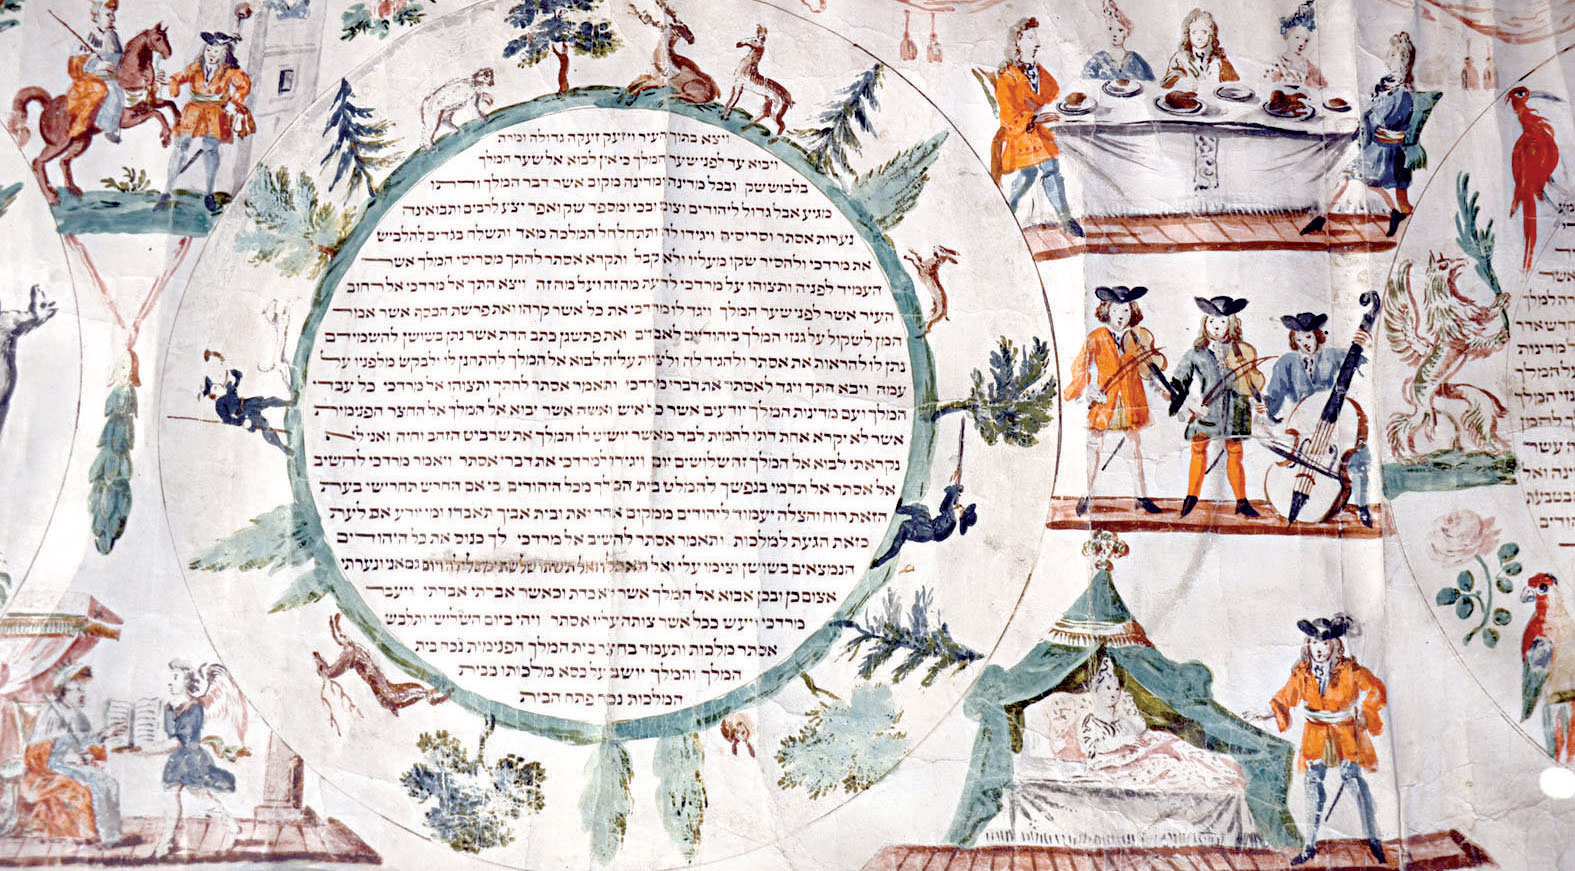 ויצא בתוך העיר ויזעק זעקה גדולה ומרה
ויבוא עד לפני שער המלך כי אין לבוא אל שער המלך
בלבוש שק ובכל מדינה ומדינה מקום אשר דבר המלך ודתו
מגיע אבל גדול ליהודים וצום ובכי ומספד שק ואפר יצע לרבים ותבואינה
נערות אסתר וסריסיה ויגידו לה ותתחלחל המלכה מאד ותשלח בגדים להלביש
את מרדכי ולהסיר שקו מעליו ולא קבל ותקרא אסתר להתך מסריסי המלך אשר
העמיד לפניה ותצוהו על מרדכי לדעת מה זה ועל מה זה ויצא התך אל מרדכי אל רחוב
העיר אשר לפני שער המלך ויגד לו מרדכי את כל אשר קרהו ואת פרשת הכסף אשר אמר
המן לשקול על גנזי המלך ביהודים לאבדם ואת פתשגן כתב הדת אשר נתן בשושן להשמידם
נתן לו להראות את אסתר ולהגיד לה ולצוות עליה לבוא אל המלך להתחנן לו ולבקש מלפניו על
עמה ויבא התך ויגד לאסתר את דברי מרדכי ותאמר אסתר להתך ותצוהו אל מרדכי כל עבדי
המלך ועם מדינות המלך יודעים אשר כל איש ואשה אשר יבוא אל המלך אל החצר הפנימית
אשר לא יקרא אחת דתו להמית לבד מאשר יושיט לו המלך את שרביט הזהב וחיה ואני לא
נקראתי לבוא אל המלך זה שלושים יום ויגידו למרדכי את דברי אסתר ויאמר מרדכי להשיב
אל אסתר אל תדמי בנפשך להמלט בית המלך מכל היהודים כי אם החרש תחרישי בעת
הזאת רוח והצלה יעמוד ליהודים ממקום אחר ואת ובית אביך תאבדו ומי יודע אם לעת
כזאת הגעת למלכות ותאמר אסתר להשיב אל מרדכי לך כנוס את כל היהודים
הנמצאים בשושן וצומו עלי ואל תאכלו ואל תשתו שלשת ימים לילה ויום גם אני ונערתי
אצום כן ובכן אבוא אל המלך אשר לא כדת וכאשר אבדתי אבדתי ויעבר
מרדכי ויעש ככל אשר צותה עליו אסתר ויהי ביום השלישי ותלבש
אסתר מלכות ותעמד בחצר בית המלך הפנימית נכח בית
המלך והמלך יושב על כסא מלכותו בבית
המלכות נכח פתח הבית
אשר
למלך
אדר
מדינות
המלך
גנזי המלך
להמן
עשר
ואל
בטבעת